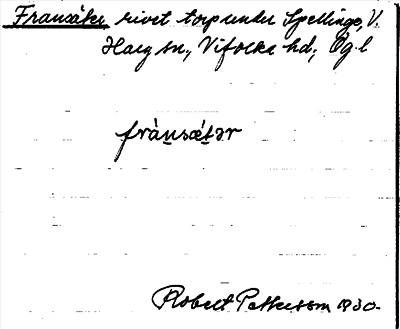 Fransäter rivet torp under Spellinge, V.
Harg sn., Vifolka hd; Ög. l
frànsǽtər
Robert Pettersson 1930.